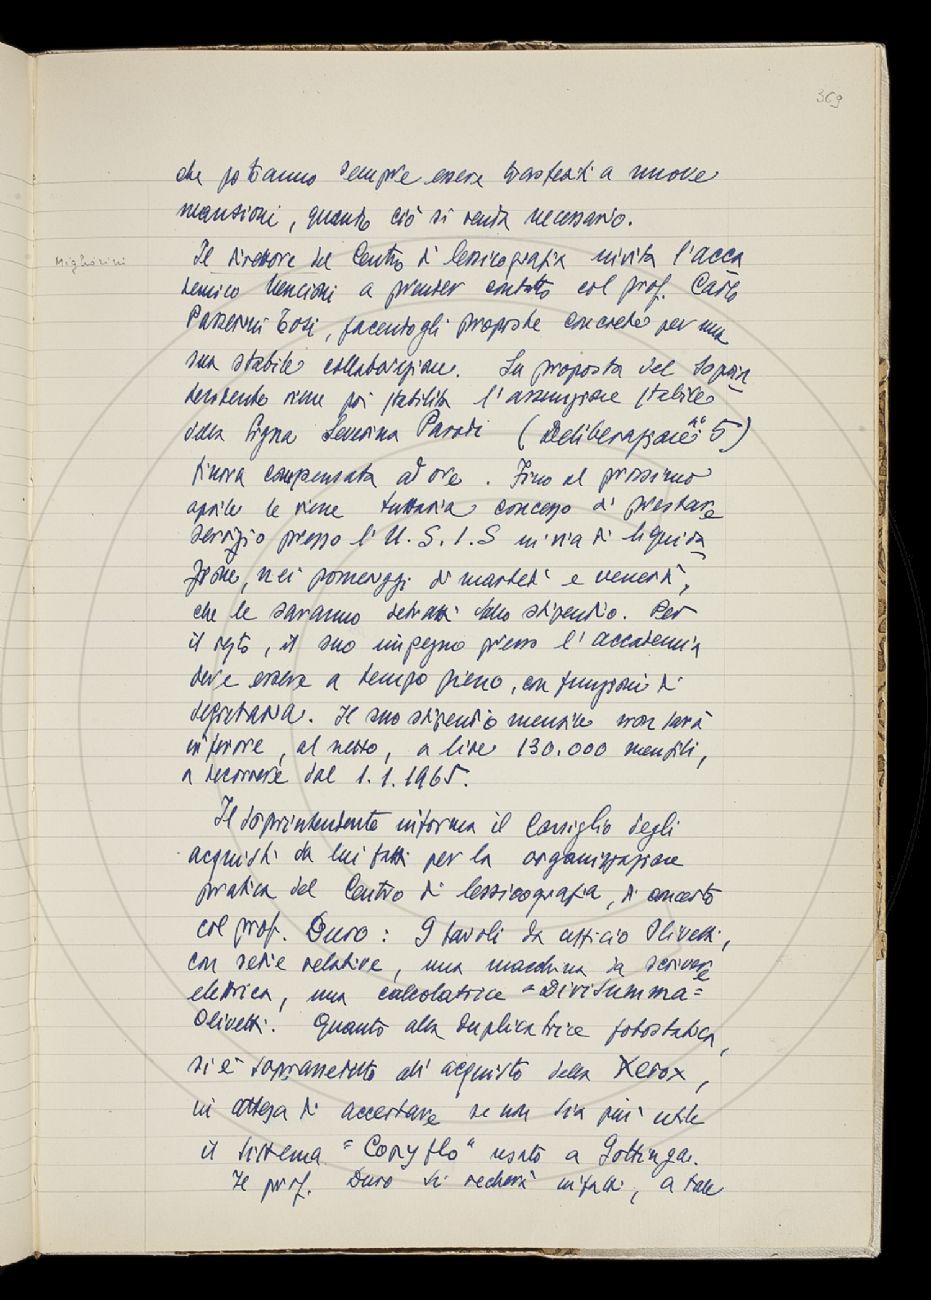 369
che potranno sempre essere trasferiti a nuove
mansioni, quando ciò si renda necessario.
Migliorini
Il direttore del Centro di lessicografia invita l'acca
demico Nencioni a prender contatto col prof. Carlo
Passerini Tosi, facendogli proposte concrete per una
sua stabile collaborazione. Su proposta del soprin
tendente viene poi stabilita l'assunzione stabile
della Sig.na Severina Parodi (Deliberazione n° 5)
finora compensata ad ore. Fino al prossimo
aprile le viene tuttavia concesso di prestare
servizio presso l'U.S.I.S in via di liquida
zione, nei pomeriggi di martedì e venerdì,
che le saranno detratti dallo stipendio. Per
il resto, il suo impegno presso l'accademia
deve essere a tempo pieno, con funzioni di
segretaria. Il suo stipendio mensile non sarà
inferiore, al netto, a lire 130.000 mensili,
a decorrere dal 1.1.1965.
Il soprintendente informa il Consiglio degli
acquisti da lui fatti per la organizzazione
pratica del Centro di lessicografia, di concerto
col prof. Duro: 9 tavoli da ufficio Olivetti,
con sedie relative, una macchina da scrivere
elettrica, una calcolatrice "Divisumma"
Olivetti. Quanto alla duplicatrice fotostatica,
si è soprasseduto all'acquisto della Xerox,
in attesa di accertare se non sia più utile
il sistema "Copyflo" usato a Gottinga.
Il prof. Duro si recherà infatti, a tale